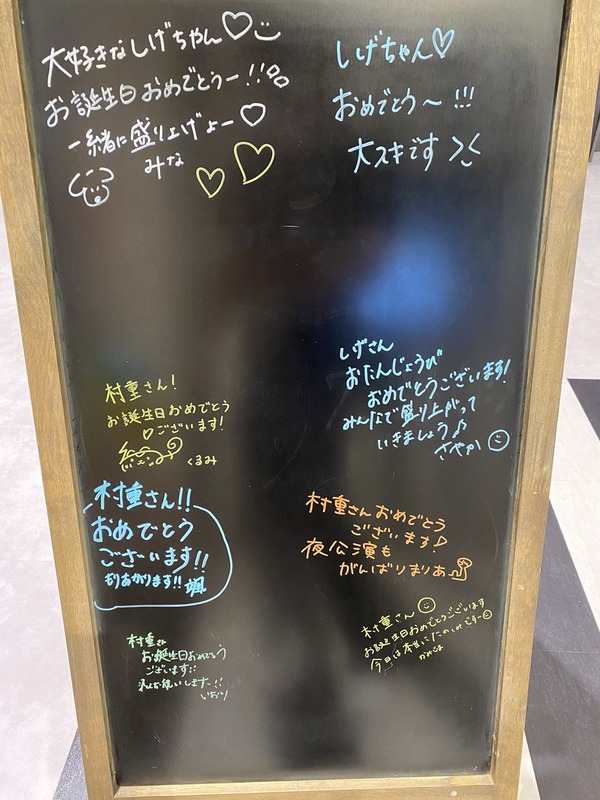 大好きなしげちゃん♡
お誕生日おめでとうー!!
一緒に盛り上げよー♡
みな
しげちゃん♡
おめでとう〜!!!
大スキです
村重さん!
お誕生日おめでとう
♡ございます!
くるみ
しげさん
おたんじょうび
おめでとうございます!
みんなで盛り上がって
いきましょう♪
さやか
村重さん!!
おめでとう
ございます!!
もりあがります!! 颯
村重さんおめでとう
ございます♪
夜公演も
がんばりまりあ
村重さん
お誕生日おめでとうございます
今日は本当に
村重さん
お誕生日おめでとう
ございます!!
いちごり